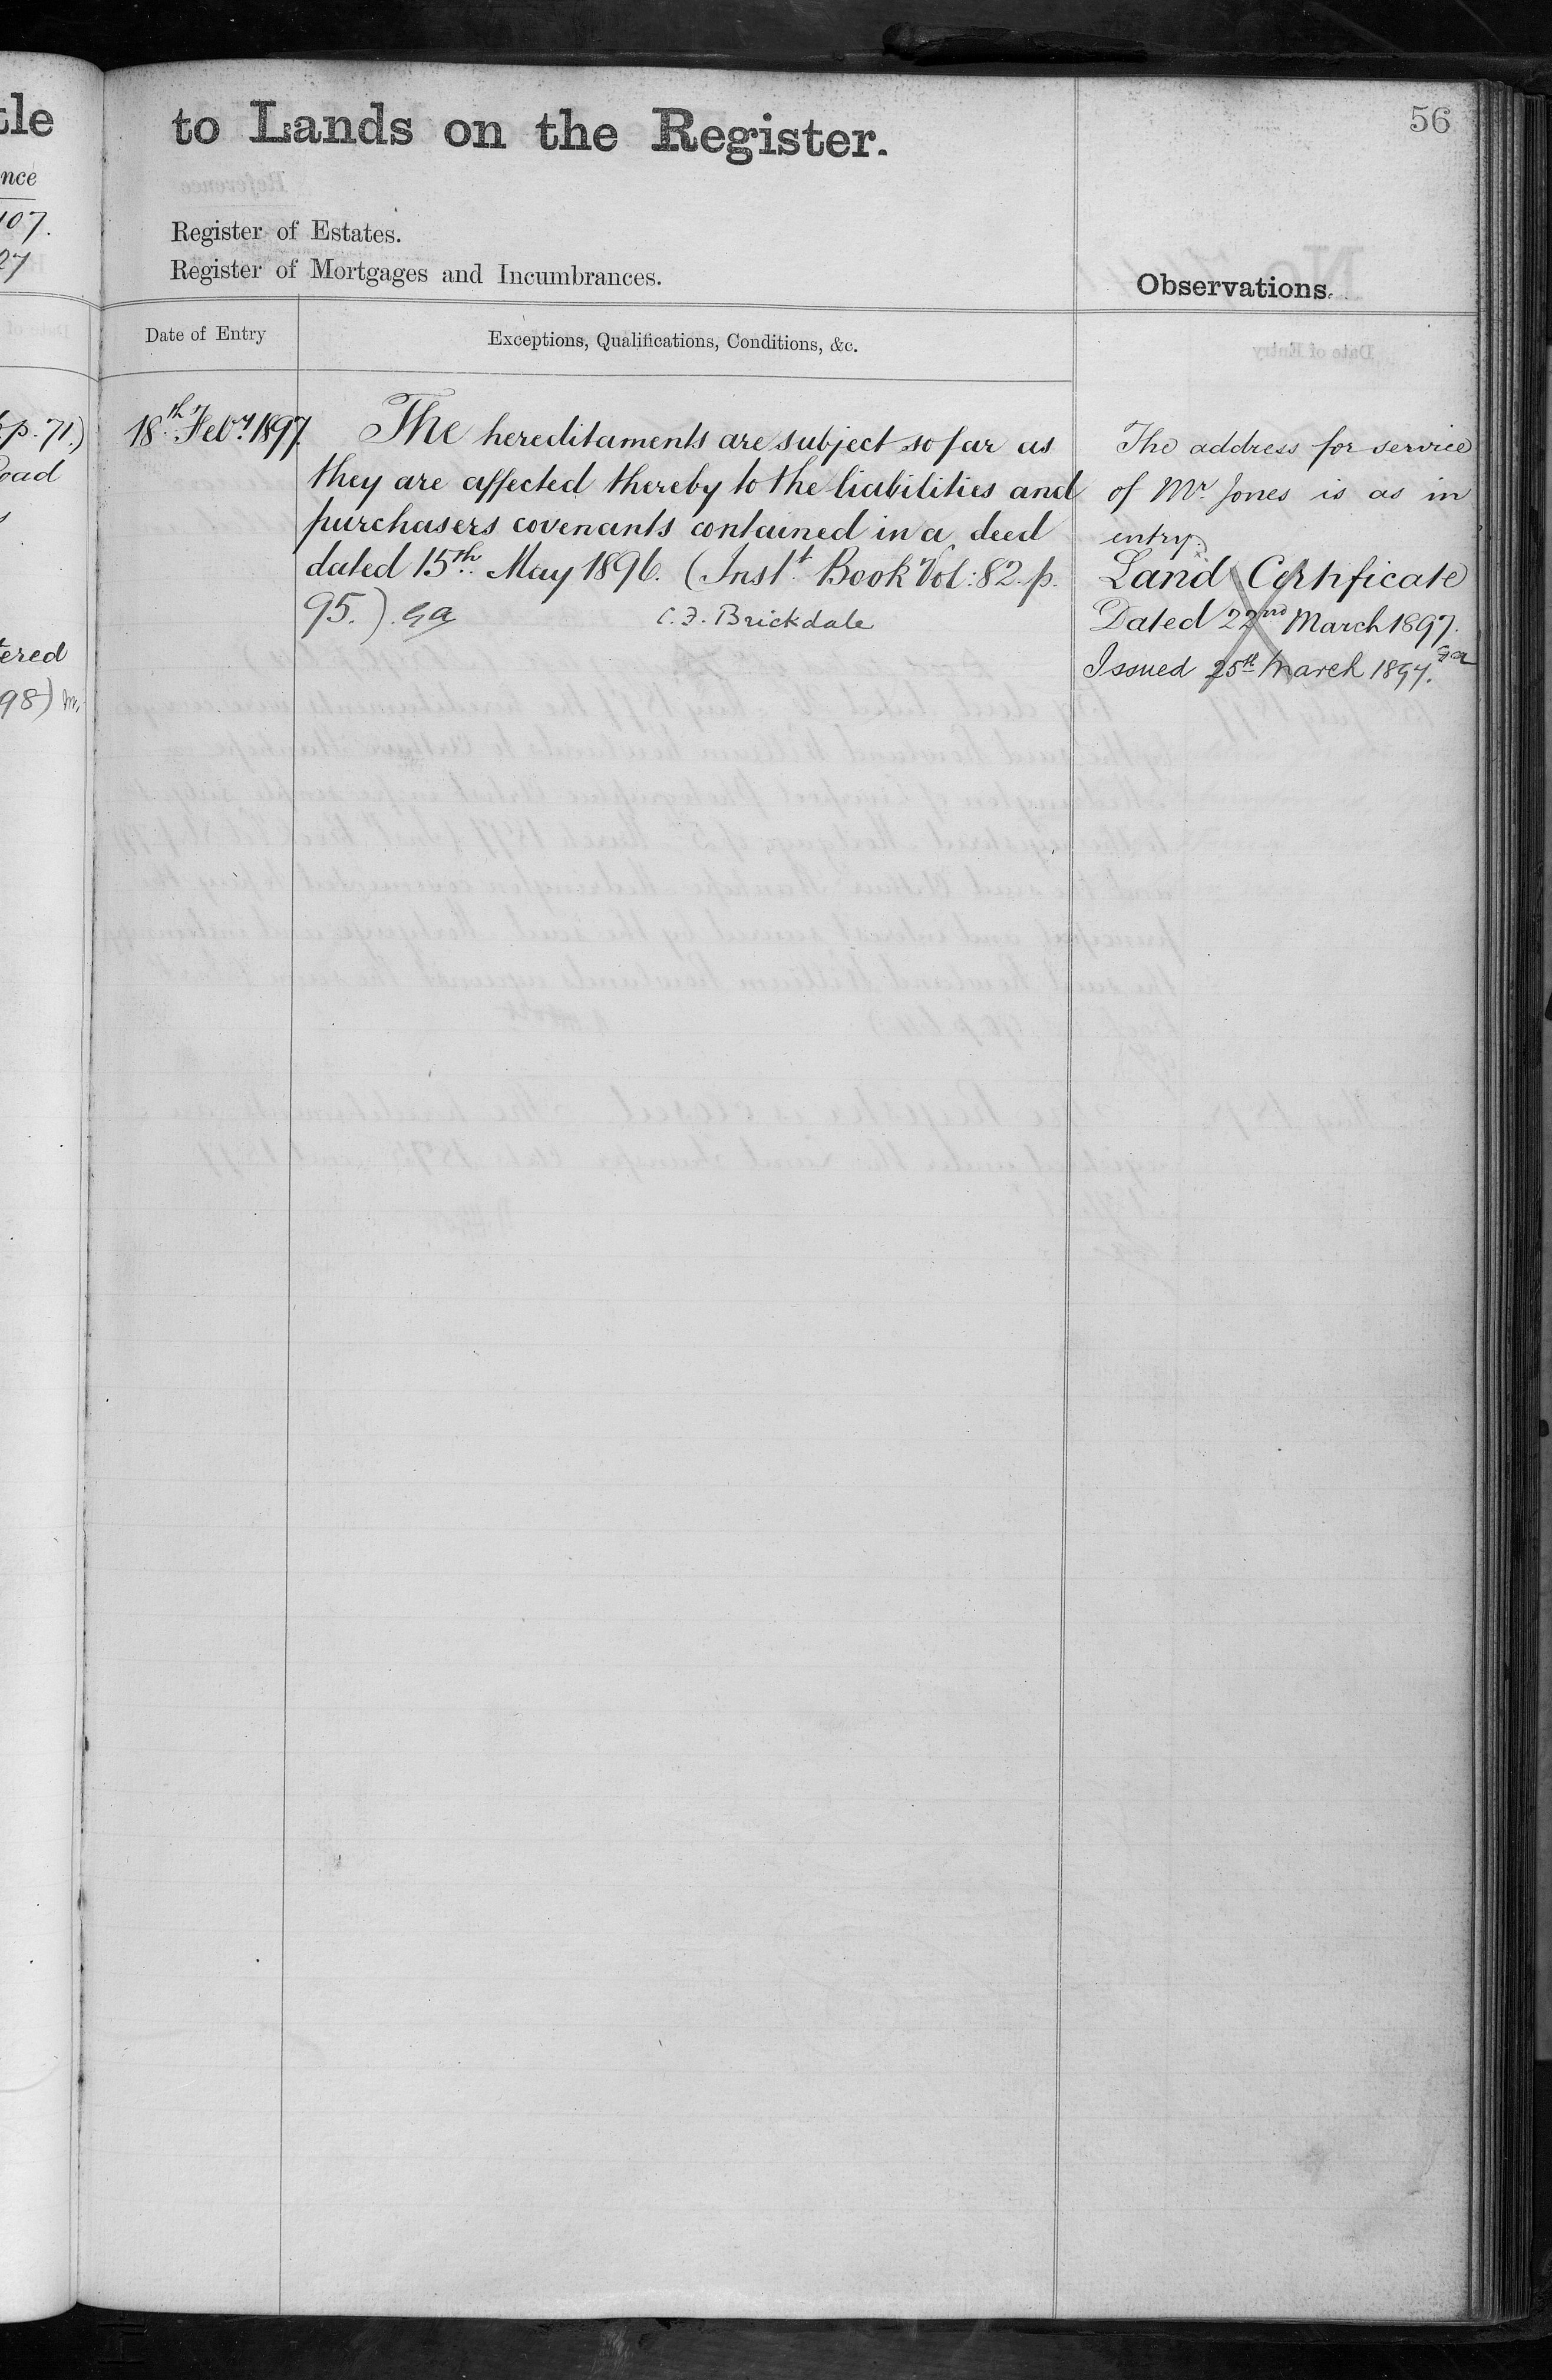 tle
nce
107.
27
p. 71.)
oad
tered
98)
to Lands on the Register.
56
Register of Estates.
Register of Mortgages and Incumbrances.
Observations.
Date of Entry
Exceptions, Qualifications, Conditions, &c.
18th Feby. 1897.
The hereditaments are subject so far as
they are affected thereby to the liabilities and
purchasers covenants contained in a deed
dated 15th. May 1896. (Inst.t Book Vol: 82. p.
95.) ga
C. F. Brickdale
The address for service
of Mr. Jones is as in
entry.
Land Certificate
Dated 22nd March 1897.
Issued 25th March 1897. ga